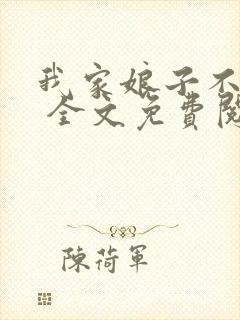 我家娘子不
全文免費閱
陳荷軍